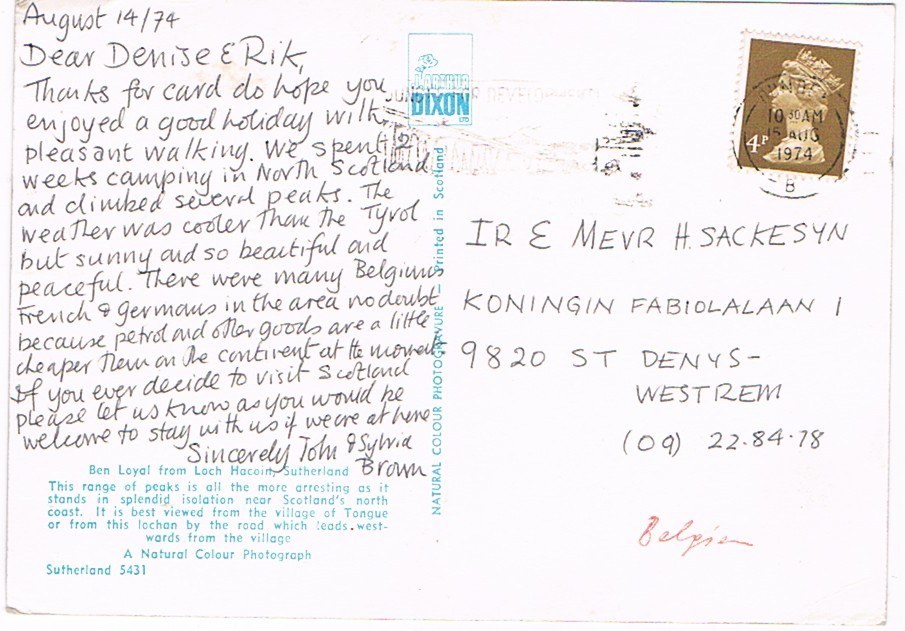 August 14/74
Dear Denise & Rik,
Thanks for card do hope you
enjoyed a good holiday with
pleasant walking. We spent 2
weeks camping in North Scotland
and climbed several peaks. The
weather was cooler than the Tyrol
but sunny and so beautiful and
peaceful. There were many Belgiums
French & Germans in the area no doubt
because petrol and other goods are a little
cheaper them on the continent at the moment.
If you ever decide to visit Scotland
please let us know as you would be
welcome to stay with us if we are at home
Sincerely John & Sylvia
Brown
Ben Loyal from Loch Hacoin, Sutherland
This range of peaks is all the more arresting as it
stands in splendid isolation near Scotland's north
coast. It is best viewed from the village of Tongue
or from this lochan by the road which leads west-
wards from the village
A Natural Colour Photograph
Sutherland 5431
J. ARTHUR
DIXON
NATURAL COLOUR PHOTOGRAVURE — Printed in Scotland
DEVELOPMENT
4P
10 30 AM
15 AUG
1974
B
IR & MEVR H. SACKESYN
KONINGIN FABIOLALAAN 1
9820 ST DENYS-
WESTREM
(09) 22.84.78
Belgien